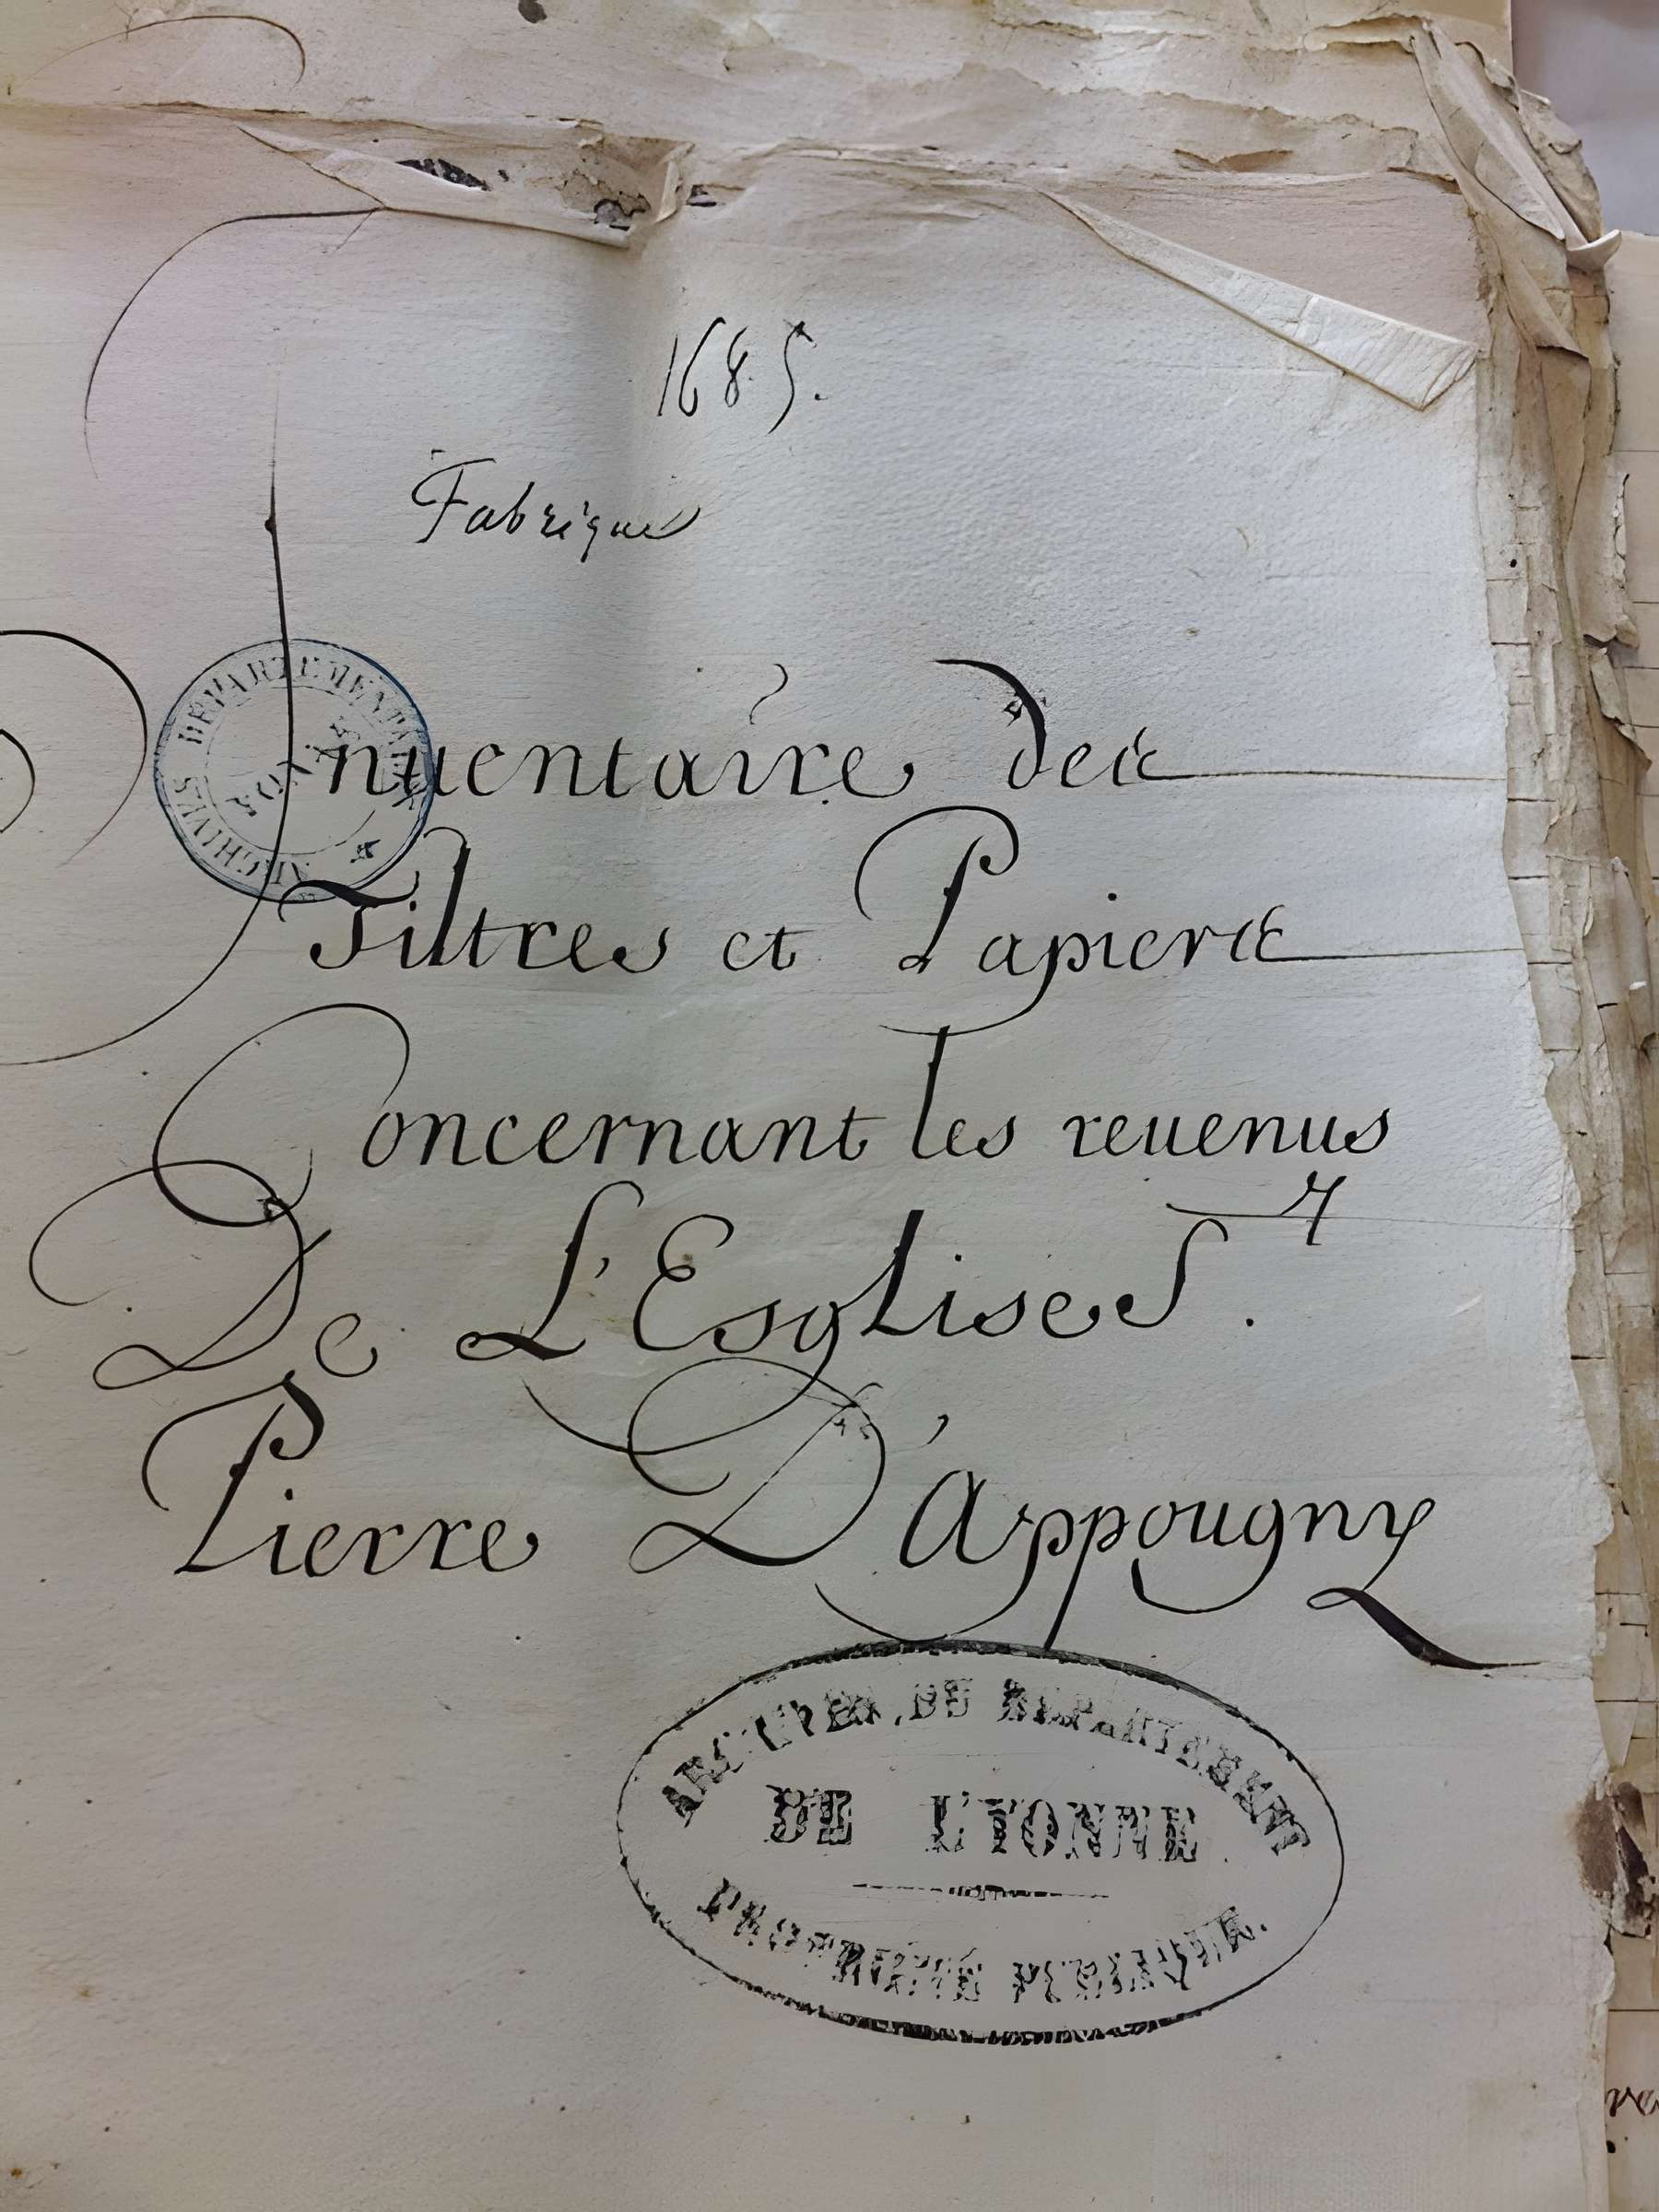 1685.
Fabrique
Inuentaire des
Tiltres et Papiers
Concernant les reuenus
De L'Esglise St.
Pierre D'Appougny
ARCHIVES DEPARTEMENTALES
YONNE
ARCHIVES DU DEPARTEMENT
DE L'YONNE
PROPRIÉTÉ PUBLIQUE.